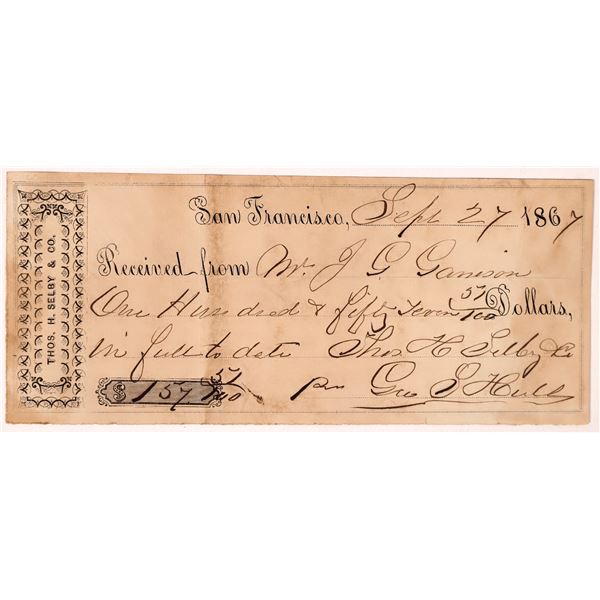 THOS. H. SELBY & CO.
San Francisco, Sept 27 1867
Received from Mr J G Garrison
One Hundred & fifty seven 57/100 Dollars,
in full to date Thos H Selby & Co
$ 157. 57/100 per Geo S Hull